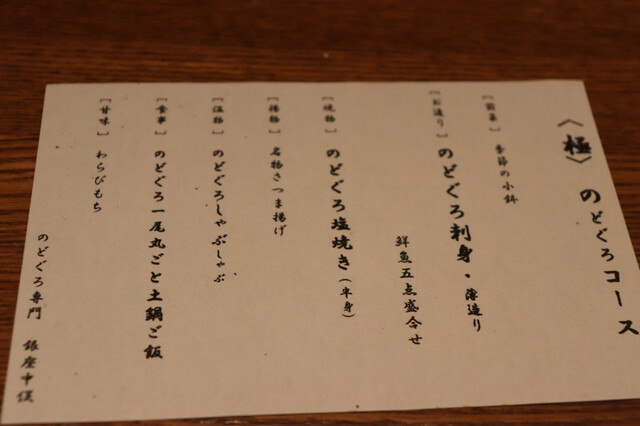 〈極〉 のどぐろコース
［前菜］ 季節の小鉢
［お造り］ のどぐろ刺身・薄造り
鮮魚五点盛合せ
［焼物］ のどぐろ塩焼き（半身）
［揚物］ 名物さつま揚げ
［温物］ のどぐろしゃぶしゃぶ
［食事］ のどぐろ一尾丸ごと土鍋ご飯
［甘味］ わらびもち
のどぐろ専門 銀座中俣